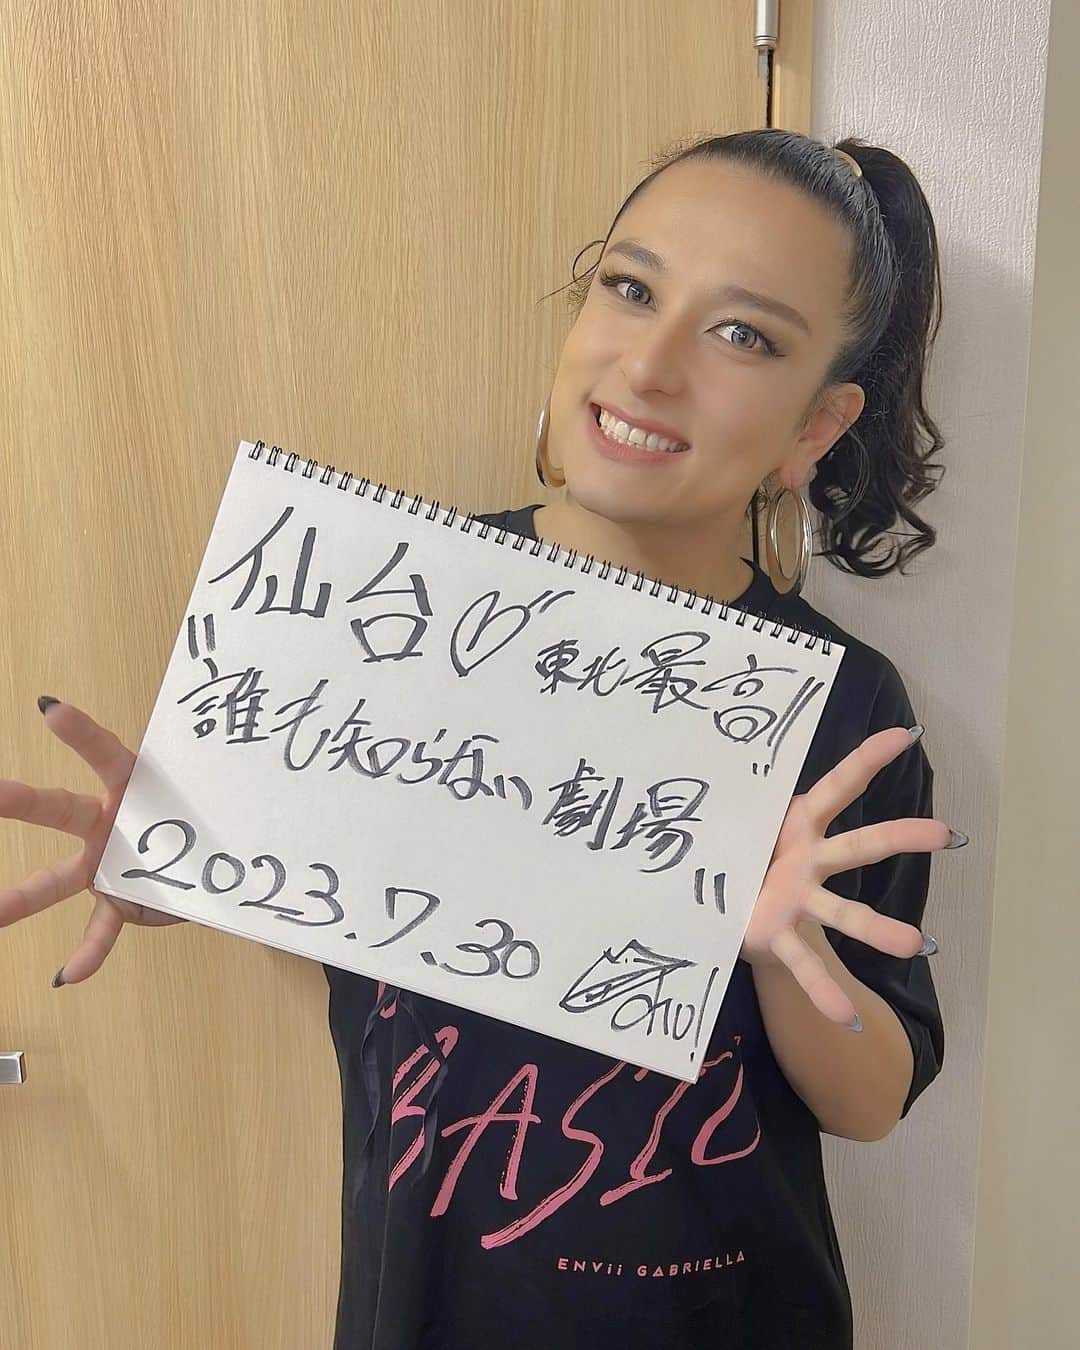 仙台♡東北最高!!
"誰も知らない劇場"
2023.7.30
BASIC
ENVii GABRIELLA